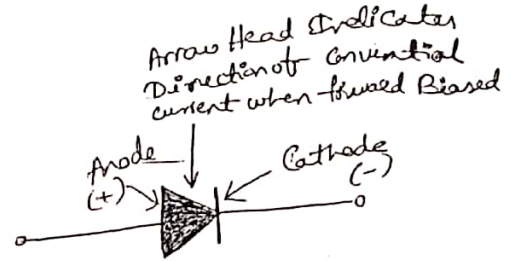 Arrow Head Indicates
Direction of Convential
current when forward Biased
Anode
(+)
Cathode
(-)